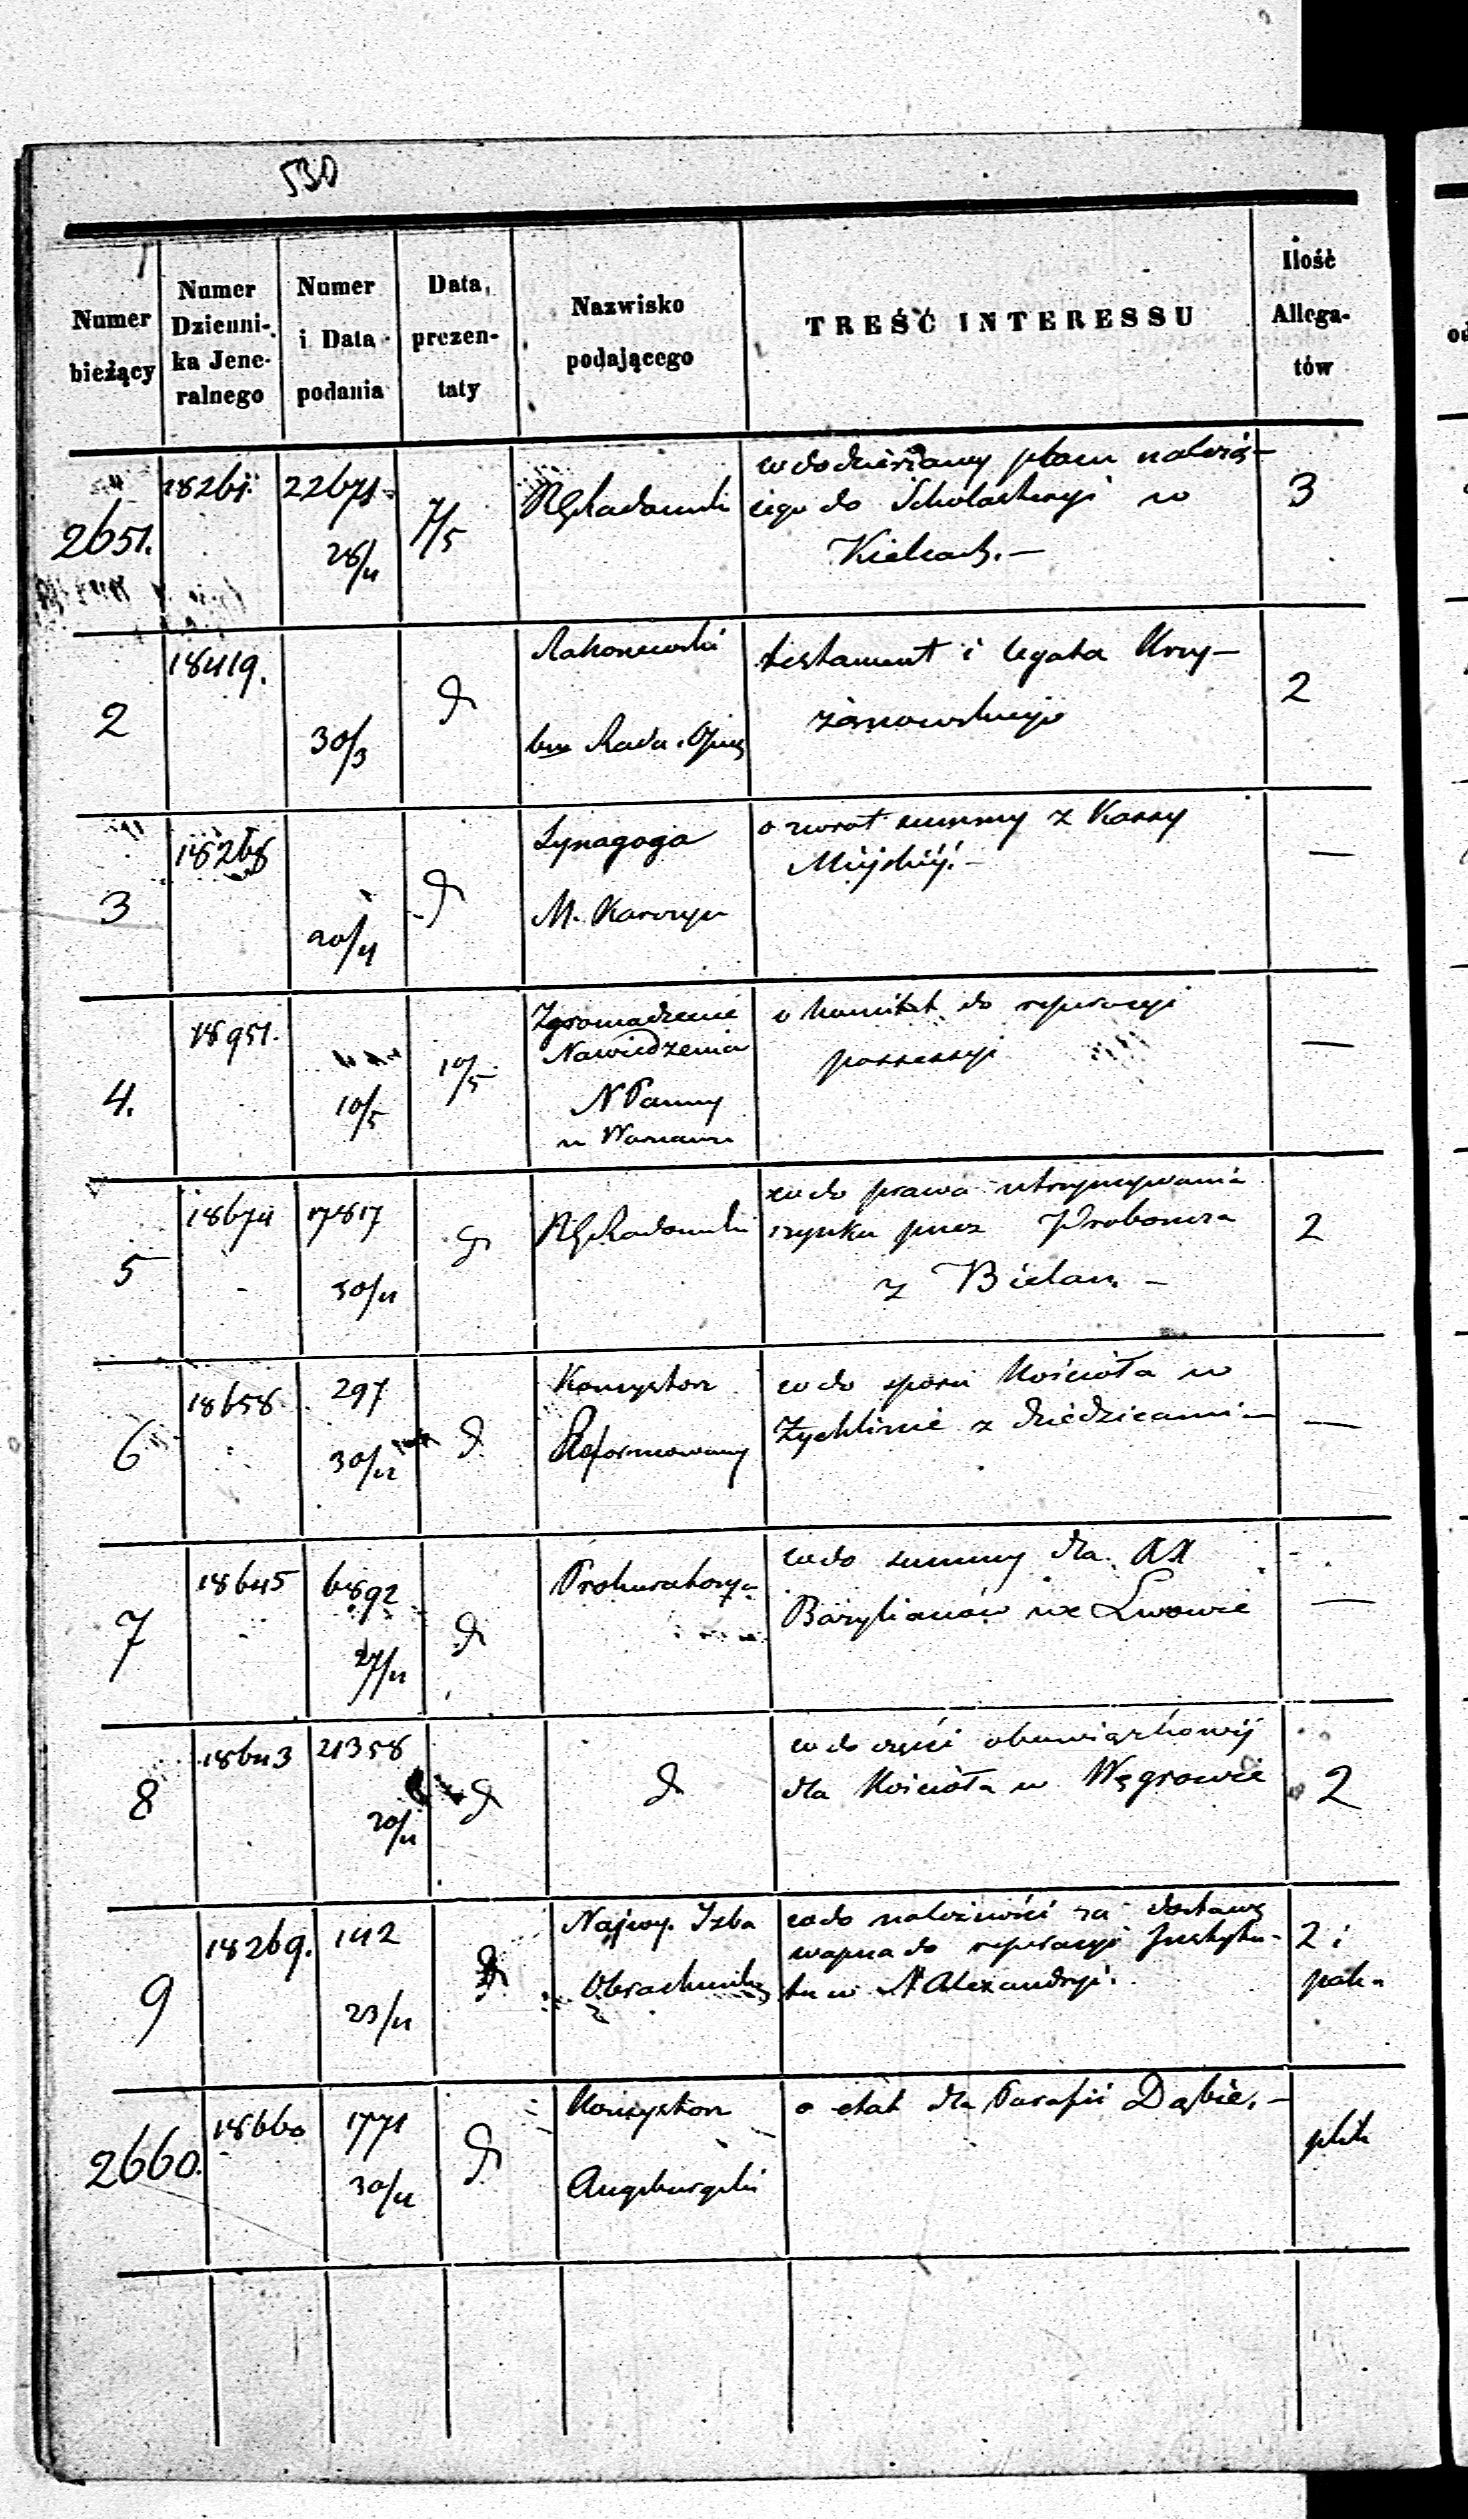 530
Numer bieżący
Numer Dzienni-
ka Jene-
ralnego
Numer
i Data
podania
Data
prezen-
taty
Nazwisko
podającego
TREŚĆ INTERESSU
Ilość
Allega-
tów
2651.
18261.
22671
28/4
7/5
RGRadomski
co do dzierżawy placu należą-
cego do Scholasteryi w
Kielcach. —
3
2
18419.
30/3
d
Rakoniewski
bw Rada Opiek
testament i legata Krzy-
żanowskiego
2
3
18268
20/4
d
Synagoga
M. Karczew
o zwrot summy z Kassy
Miejskiéj. —
—
4.
18951.
10/5
10/5
Zgromadzenie
Nawiedzenia
N Panny
w Warszawie
o komitet do reperacyi
possessyi
—
5
18674
17817
30/4
d
RGRadomski
co do prawa utrzymywania
szynku przez Proboszcza
z Bielan. —
2
6
18658
297
30/4
d
Konsystorz
Reformowany
co do sporu Kościoła w
Żychlinie z dziedzicami —
—
7
18645
6892
27/4
d
Prokuratorya
co do summy dla XX
Bazylianów we Lwowie
—
8
18643
21358
20/4
d
d
co do części obowiązkowéj
dla Kościoła w Węgrowie
2
9
18269.
142
23/4
d
Najwy. Izba
Obrachunkowa
co do należności za dostawę
wapna do reperacyi Instytu-
tu w N Alexandryi.
2 i
pak.
2660.
18660
1771
30/4
d
Konsystorz
Augsburgski
o etat dla Parafii Dąbie. —
plik